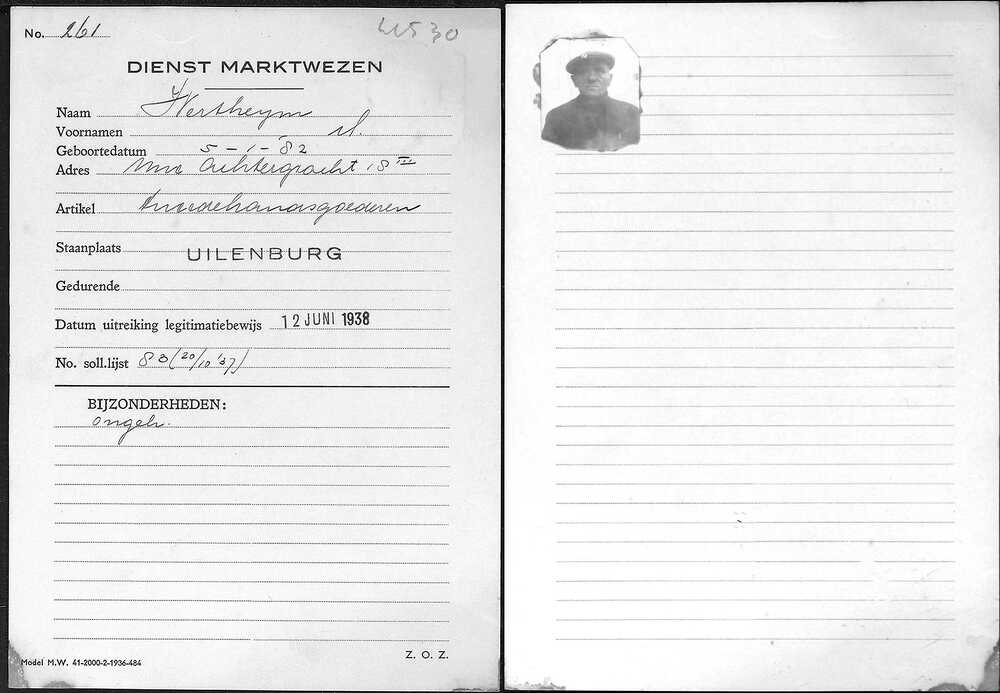 No. 261
DIENST MARKTWEZEN
Naam Wertheym
Voornamen M.
Geboortedatum 5-1-'82
Adres Nwe Achtergracht 18 III
Artikel tweedehandsgoederen
Staanplaats UILENBURG
Gedurende
Datum uitreiking legitimatiebewijs 12 JUNI 1938
No. soll.lijst 83 (20/10 '37)
BIJZONDERHEDEN:
ongeh.
Model M.W. 41-2000-2-1936-484
Z. O. Z.